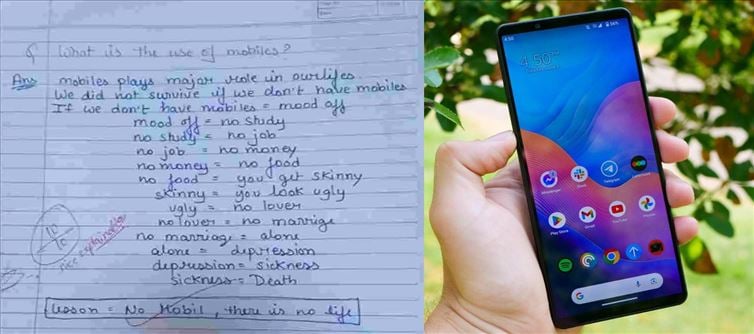 Q What is the use of mobiles?
Ans mobiles plays major role in our lifes.
We did not survive if we don't have mobiles
If we don't have mobiles = mood off
mood off = no study
no study = no job
no job = no money
no money = no food
no food = you get skinny
skinny = you look ugly
ugly = no lover
no lover = no marrige
no marriage = alone
alone = depression
depression = sickness
sickness = Death
Lesson = No Mobil, there is no life
10/10
nice explaination
4:50
56%
4:50
Messenger
Slack
Telegram
Play Store
Gmail
YouTube
Photos